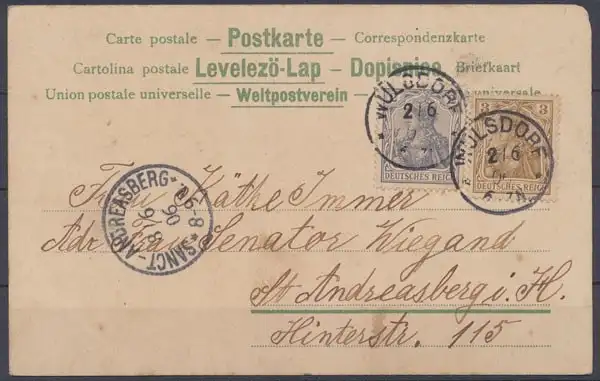 Carte postale — Postkarte — Correspondenzkarte
Cartolina postale — Levelezö-Lap — Dopisnice Briefkaart
Union postale universelle — Weltpostverein — universale
WULSDORF
2/6
WULSDORF
2/6
3 3
DEUTSCHES REICH
DEUTSCHES REICH
SANCT-ANDREASBERG
Frau Käthe Immer
Adr. Frau Senator Wiegand
St Andreasberg i. H.
Hinterstr. 115